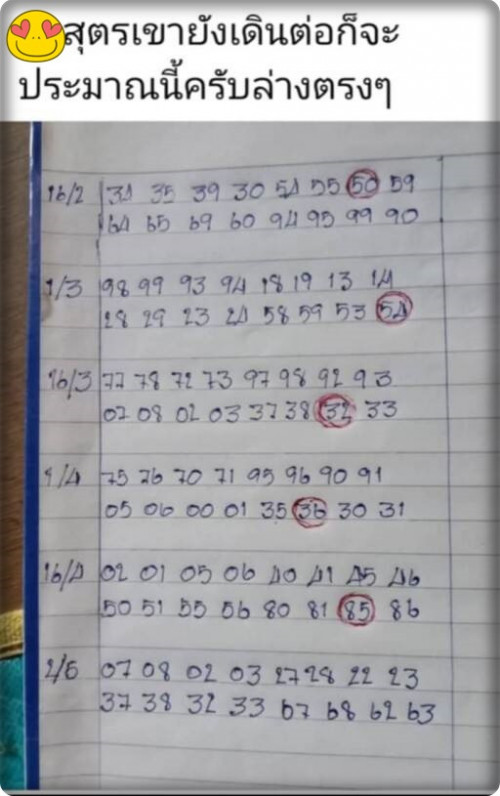 สุตรเขายังเดินต่อก็จะ
ประมาณนี้ครับล่างตรงๆ
16/2 34 35 39 30 54 55 50 59
64 65 69 60 94 95 99 90
1/3 98 99 93 94 18 19 13 14
28 29 23 24 58 59 53 54
16/3 77 78 72 73 97 98 92 93
07 08 02 03 37 38 32 33
1/4 75 76 70 71 95 96 90 91
05 06 00 01 35 36 30 31
16/4 02 01 05 06 40 41 45 46
50 51 55 56 80 81 85 86
2/5 07 08 02 03 27 28 22 23
37 38 32 33 67 68 62 63